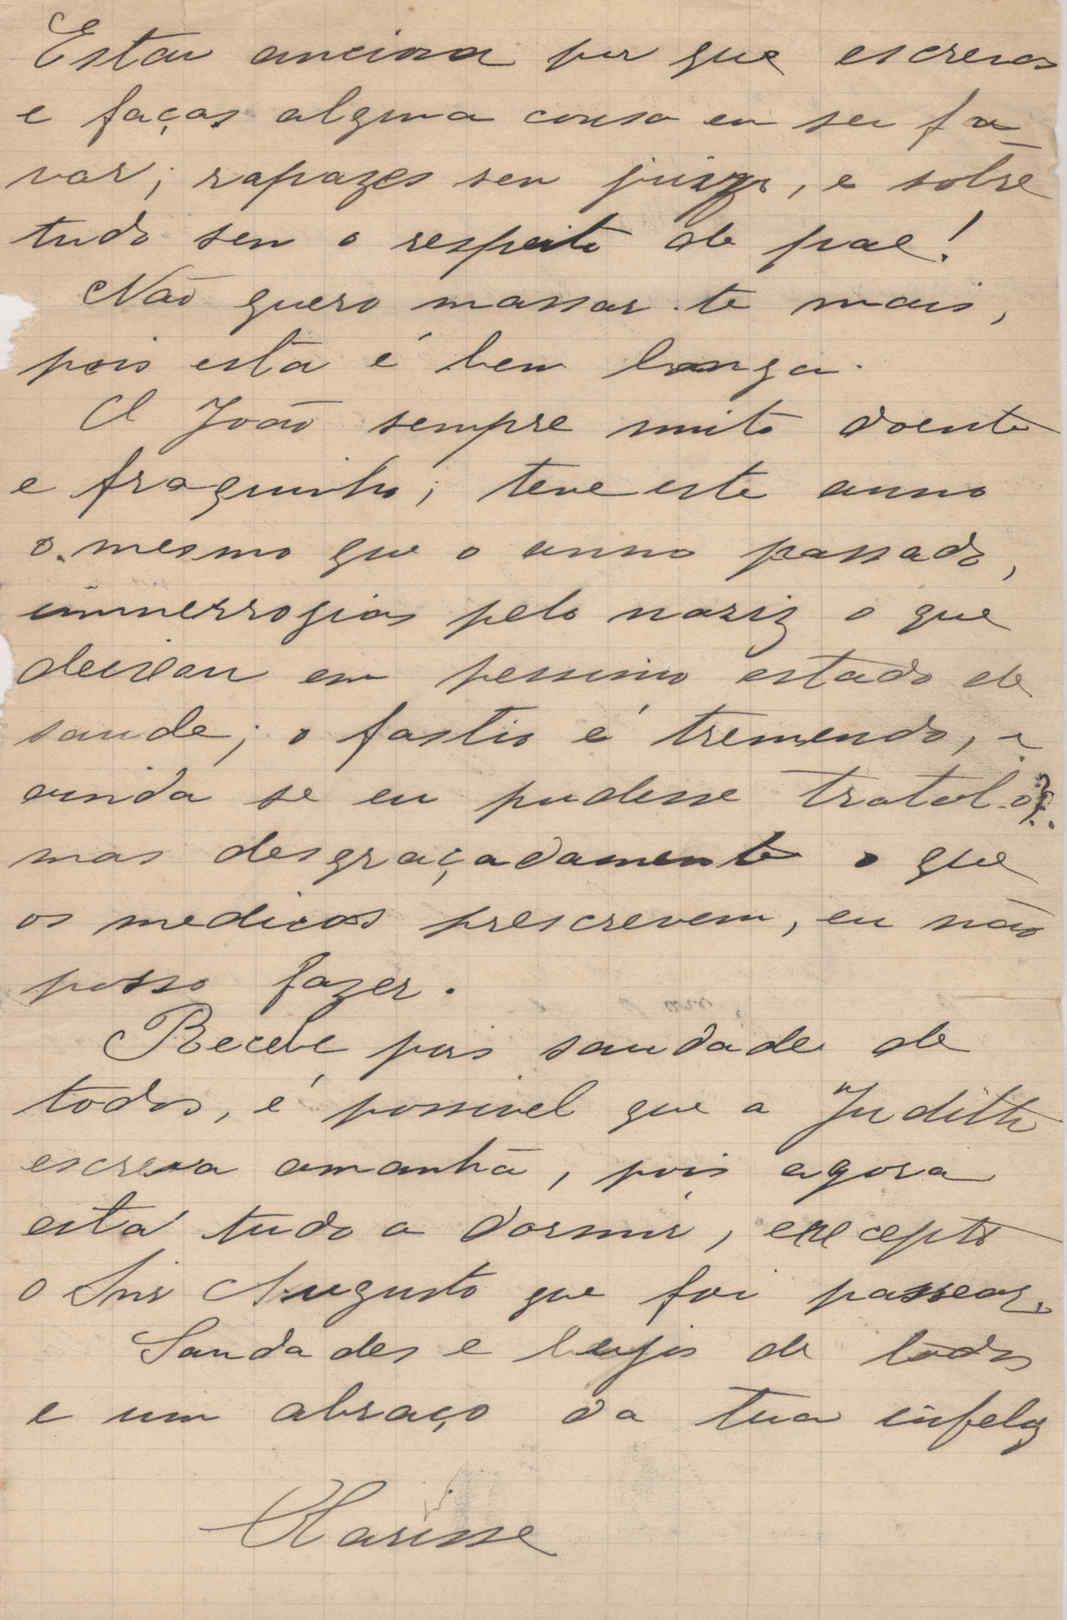 Estou anciosa por que escrevas
e faças alguma cousa em seu fa-
vor; rapazes sem juizo, e sobre
tudo sem o respeito de pae!
Não quero massar-te mais,
pois esta é bem longa.
O João sempre muito doente
e fraquinho; teve este anno
o mesmo que o anno passado,
immerrogias pelo nariz o que
deixou em pessimo estado de
saude; o fastio é tremendo, e
ainda se eu pudesse tratal-o?
mas desgraçadamente o que
os medicos prescrevem, eu não
posso fazer.
Recebe pois saudade de
todos, é possivel que a Judith
escreva amanhã, pois agora
está tudo a dormir, excepto
o Snr Augusto que foi passear.
Saudades e beijos de todos
e um abraço da tua infeliz
Clarisse